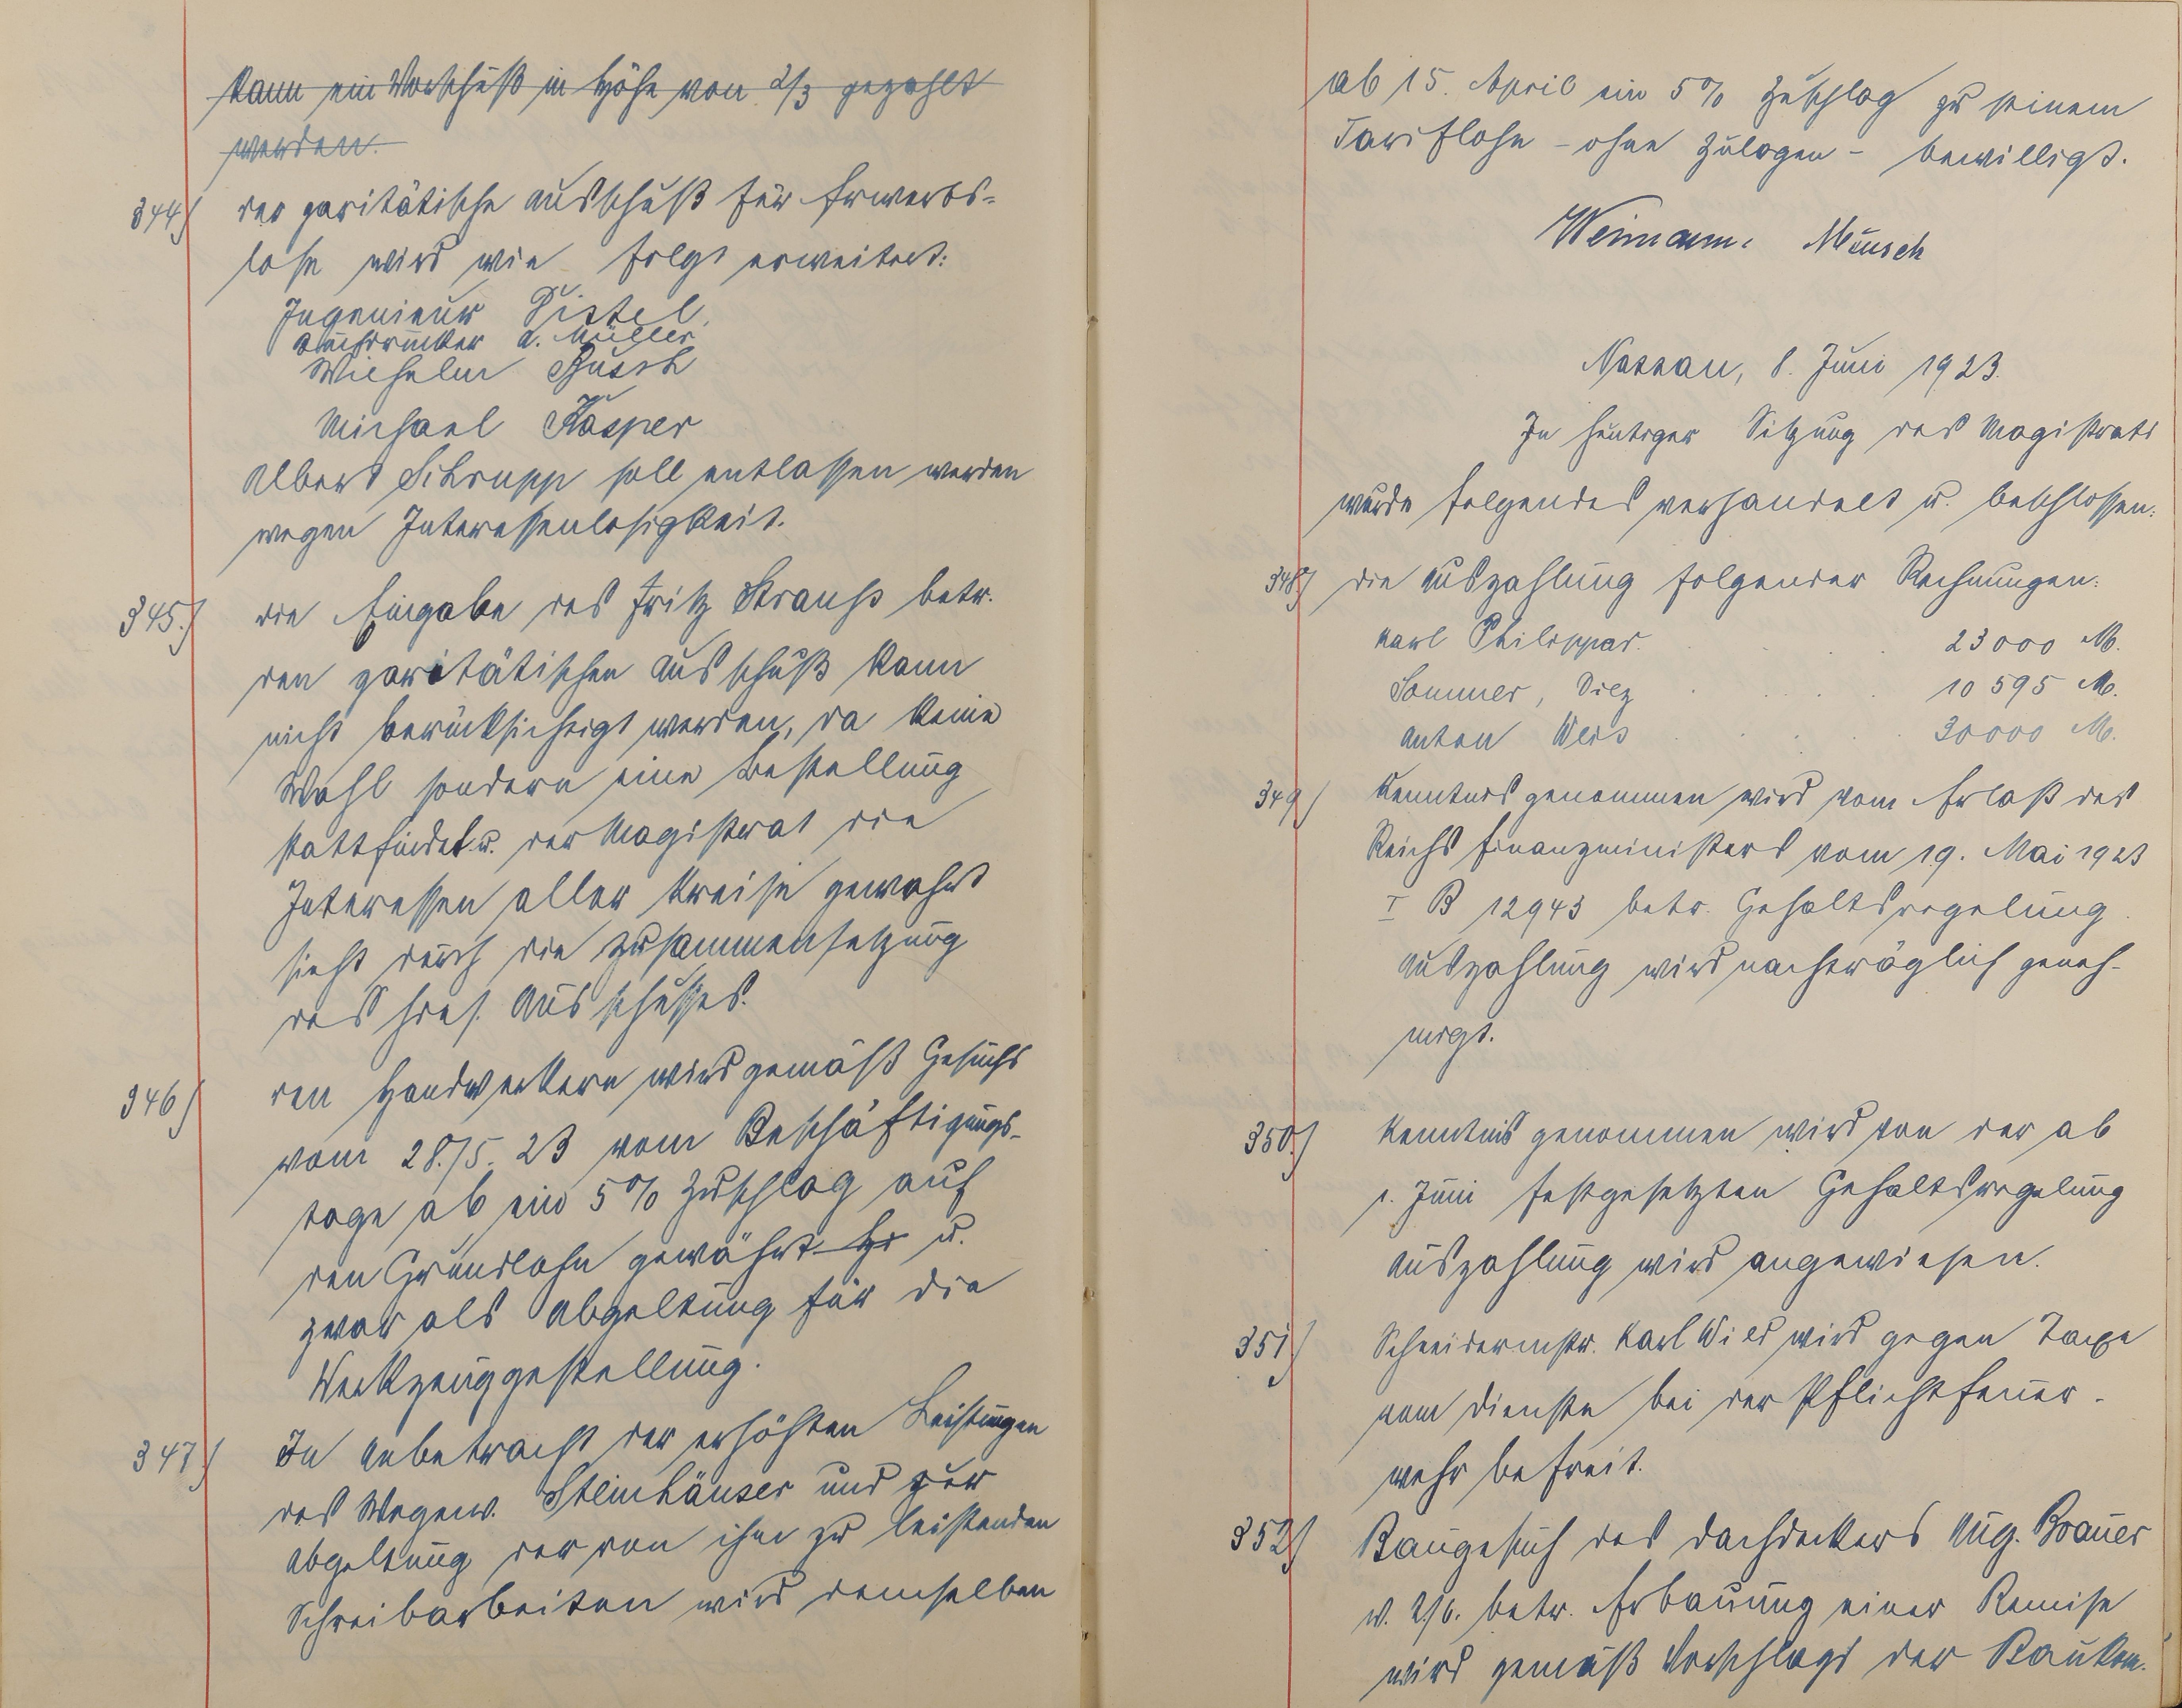 kann ein Vorschuß in Höhe von 2/3 gezahlt
werden.
344) der paritätische Ausschuß für Erwerbs-
lose wird wie folgt erweitert:
Ingenieur Pistel,
Buchdrucker A. Müller
Wilhelm Busch
Michael Kasper
Albert Schrupp soll entlassen werden
wegen Interessenlosigkeit.
345.) die Eingabe des Fritz Strauss betr.
den paritätischen Ausschuß kann
nicht berücksichtigt werden, da keine
Wahl sondern eine Bestellung
stattfindet u. der Magistrat die
Interessen aller Kreise gewahrt
sieht durch die Zusammensetzung
des hies. Ausschusses.
346) den Handwerkern wird gemäß Gesuchs
vom 28./5. 23 vom Beschäftigungs-
tage ab ein 5% Zuschlag auf
den Grundlohn gewährt u.
zwar als Abgeltung für die
Werkzeuggestellung.
347) In Anbetracht der erhöhten Leistungen
des Wegew. Steinhäuser und zur
Abgeltung der von ihm zu leistenden
Schreibarbeiten wird demselben
ab 15. April ein 5% Zuschlag zu seinem
Tariflohn - ohne Zulagen - bewilligt.
Münsch
Nassau, 8. Juni 1923.
In heutiger Sitzung des Magistrats
wurde folgendes verhandelt u. beschlossen:
348) die Auszahlung folgender Rechnungen:
Karl Philippar. . . . 23000 M.
Sommer, Diez . . . . 10 595 M.
Anton Weis . . . . 30000 M.
349) Kenntnis genommen wird vom Erlaß des
Reichsfinanzministers vom 19. Mai 1923
I B 12943 betr. Gehaltsregelung.
Auszahlung wird nachträglich geneh-
migt.
350.) Kenntnis genommen wird von der ab
1. Juni festgesetzten Gehaltsregelung
Auszahlung wird angewiesen.
351) Schneidermstr. Karl Wild wird gegen Taxe
vom Dienste bei der Pflichtfeuer-
wehr befreit.
352) Baugesuch des Dachdeckers Aug. Brauer
v. 2/6. betr. Erbauung einer Remise
wird gemäß Vorschlags der Baukom.